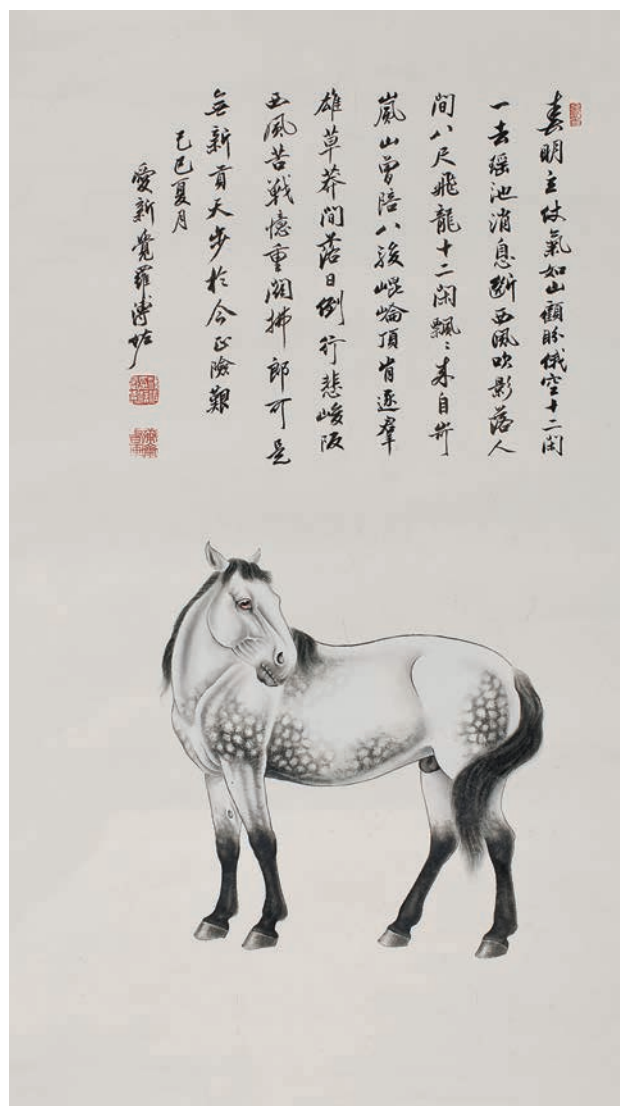 春明立仗氣如山顧盼俄空十二閑
一去瑶池消息斷西風吹影落人
間八尺飛龍十二閑飄〻来自岢
嵐山曾陪八駿崐崘頂肯逐羣
雄草莽間落日倒行悲峻阪
西風苦戰憶重關拂郎可是
無新貢天步於今正險艱
己巳夏月
愛新覺羅溥佐